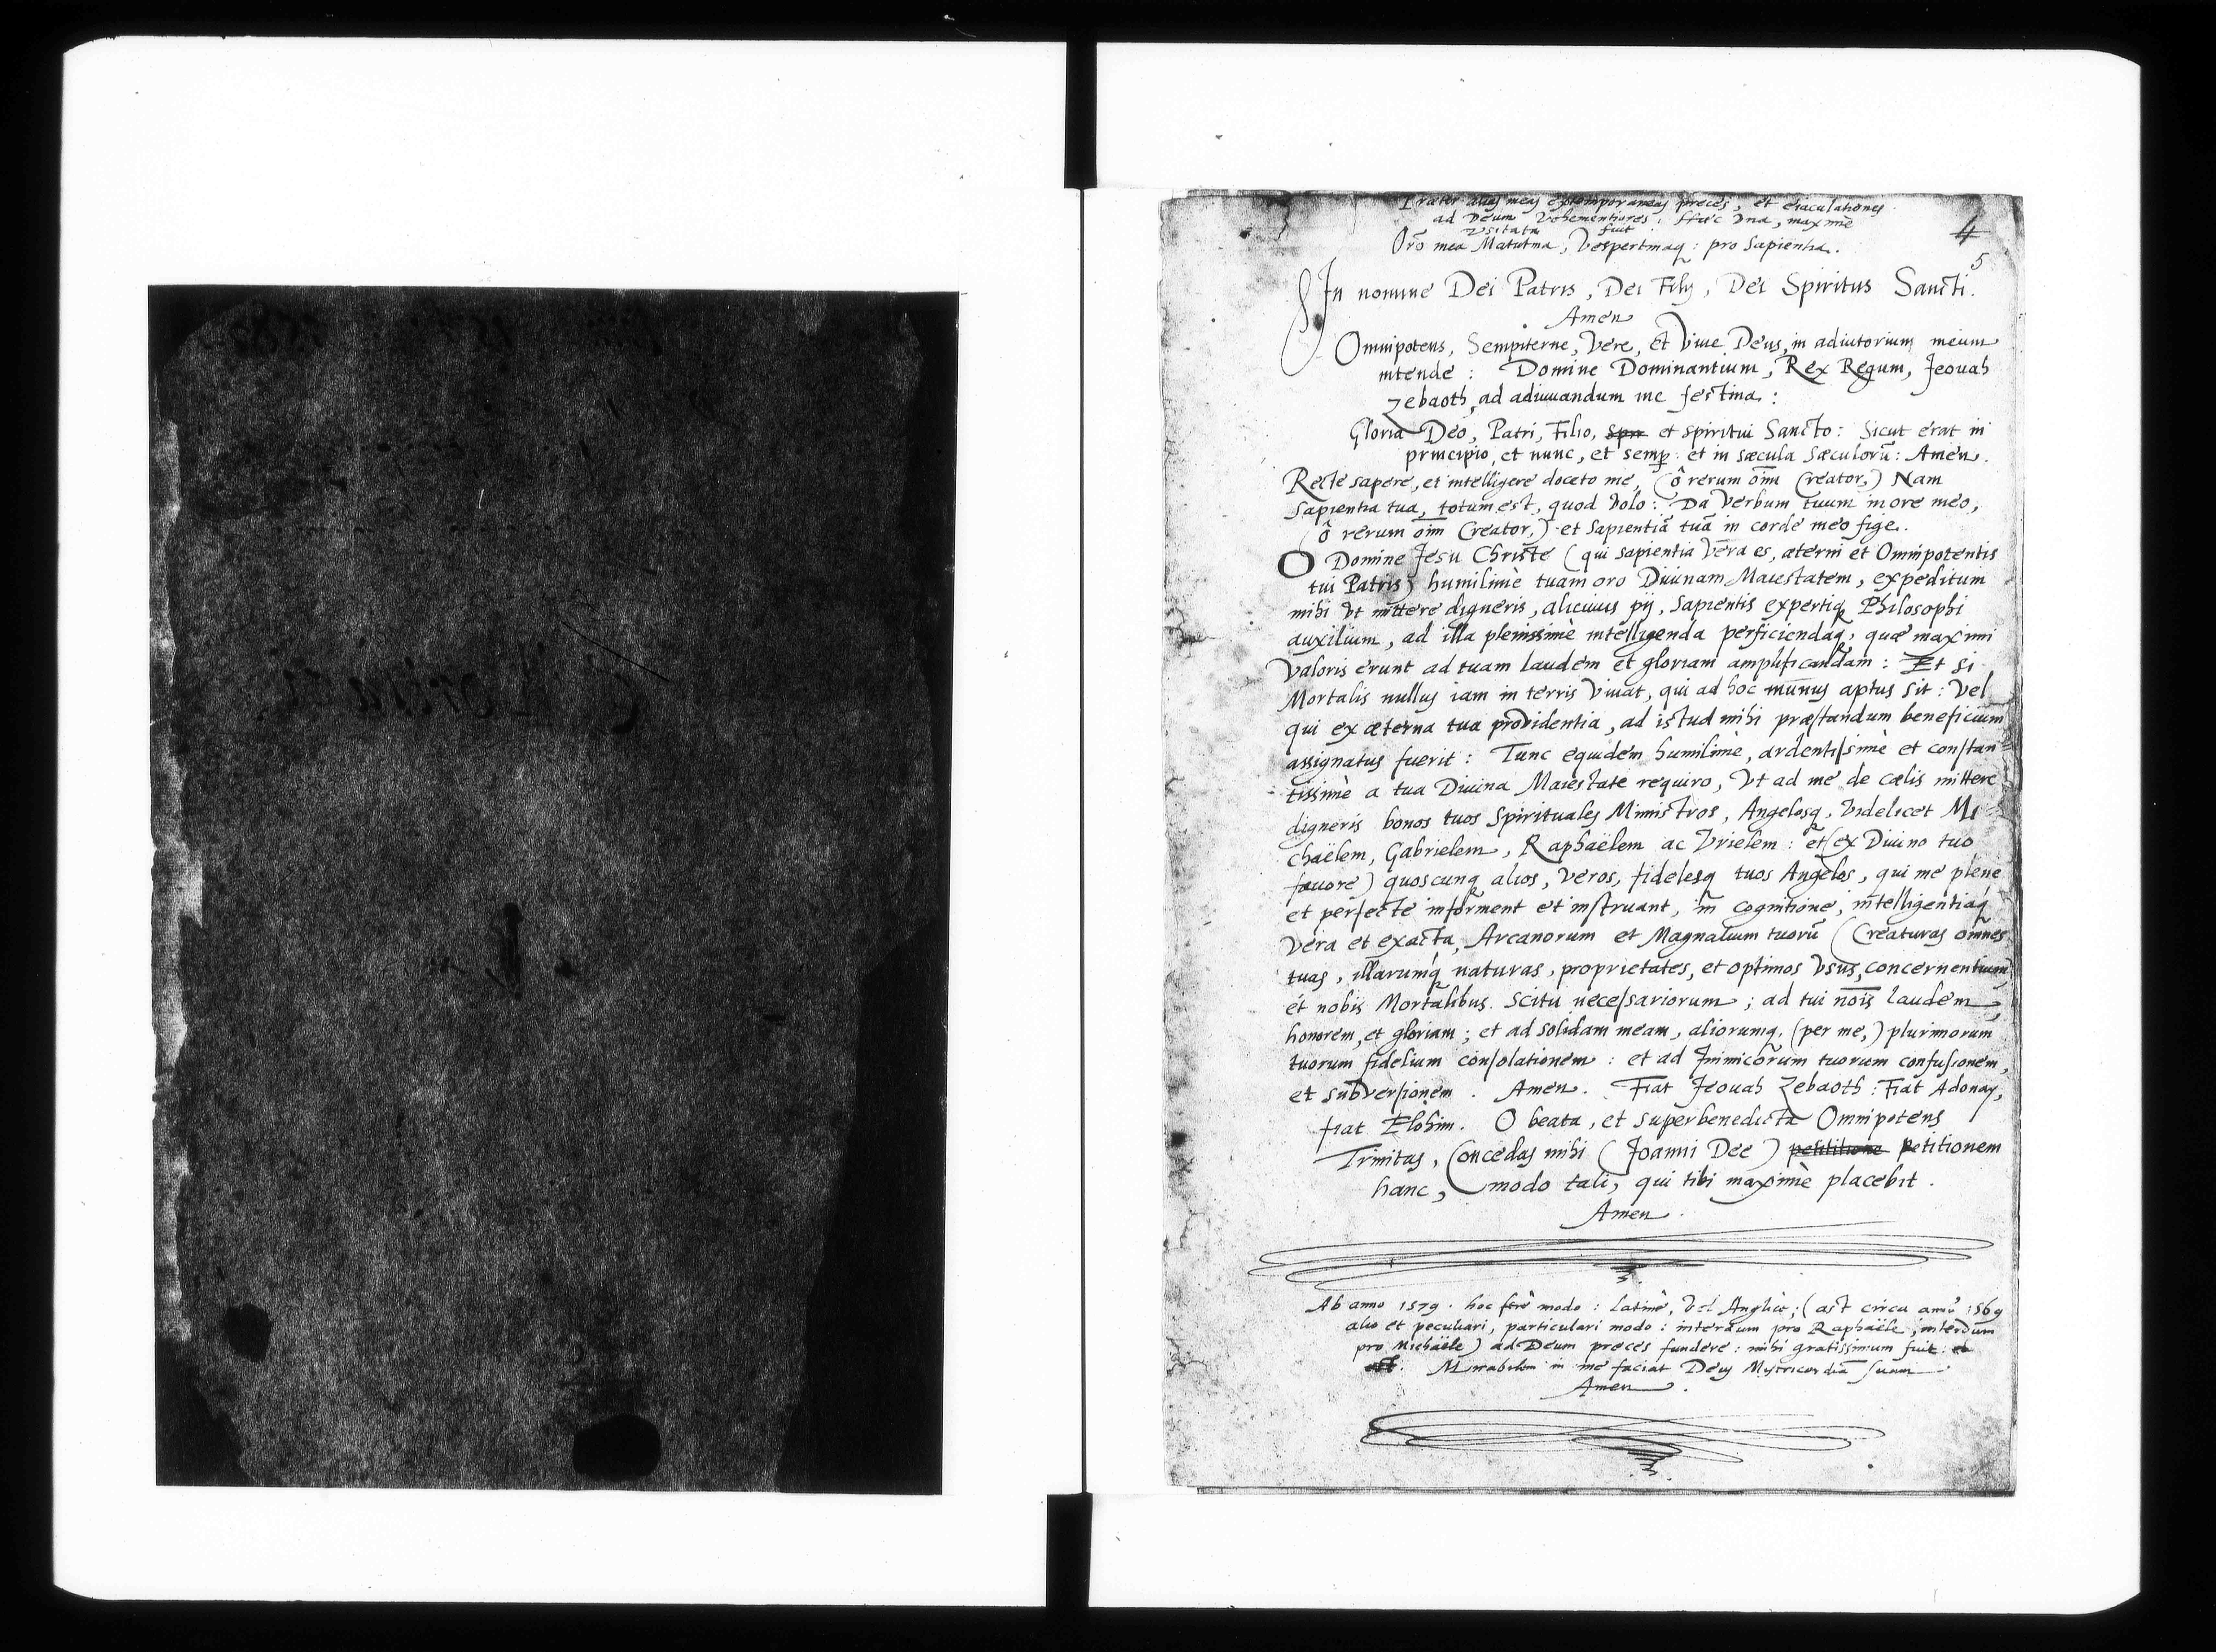 Præter alias meas extemporaneas preces, et eiaculationes
ad Deum vehementiores: Hæc vna, maximè
vsitata fuit
4
Orō mea Matutina, Vespertinaq: pro Sapientia.
5
In nomine Dei Patris, Dei Filij, Dei Spiritus Sancti.
Amen
Omnipotens, Sempiterne, Vere, et Viue Deus, in adiutorium meum
intende: Domine Dominantium, Rex Regum, Jeouah
Zebaoth, ad adiuuandum me festina:
Gloria Deo, Patri, Filio, Spir et spiritui Sancto: Sicut erat in
principio, et nunc, et semp et in sæcula sæculorū: Amen.
Recte sapere, et intelligere doceto me, (ô rerum oīm Creator,) Nam
Sapientia tua, totum est, quod volo: Da Verbum tuum in ore meo,
(ô rerum oīm Creator,) et Sapientiā tuā in corde meo fige.
O Domine Jesu Christe (qui sapientia vera es, æterni et Omnipotentis
tui Patris) humilimè tuam oro Diuinam Maiestatem, expeditum
mihi vt mittere digneris, alicuius pij, Sapientis expertiq Philosophi
auxilium, ad illa plenissimè intelligenda perficiendaq, quæ maximi
Valoris erunt ad tuam laudem et gloriam amplificandam: Et si
Mortalis nullus iam in terris viuat, qui ad hoc munus aptus sit: vel
qui ex æterna tua providentia, ad istud mihi præstandum beneficium
assignatus fuerit: Tunc equidem humilimè, ardentissimè et constan=
tissimè a tua Diuina Maiestate requiro, Vt ad me de cælis mittere
digneris bonos tuos Spirituales Ministros, Angelosq, videlicet Mi
chaëlem, Gabrielem, Raphaëlem ac Vrielem: et (ex Diuino tuo
fauore) quoscunq alios, veros, fidelesq tuos Angelos, qui me plene
et perfecte informent et instruant, in cognitione, intelligentiaq
vera et exacta, Arcanorum et Magnalium tuorū (Creaturas omnes
tuas, illarumq naturas, proprietates, et optimos vsus, concernentium,
et nobis Mortalibus scitu necessariorum; ad tui nōis laudem,
honorem, et gloriam; et ad solidam meam, aliorumq, (per me,) plurimorum
tuorum fidelium consolationem: et ad Inimicorum tuorum confusionem,
et subversionem. Amen. Fiat Jeouah Zebaoth: Fiat Adonay,
fiat Elohim. O beata, et superbenedicta Omnipotens
Trinitas, Concedas mihi (Joanni Dee) petitione petitionem
hanc, modo tali, qui tibi maximè placebit.
Amen.
Ab anno 1579. hoc ferè modo: Latinè, vel Anglicè; (ast circa annū 1569
alio et peculiari, particulari modo: interdum pro Raphaële, interdum
pro Michaële) ad Deum preces fundere: mihi gratissimum fuit:
Mirabilem in me faciat Deus Misericordiā suam
Amen.